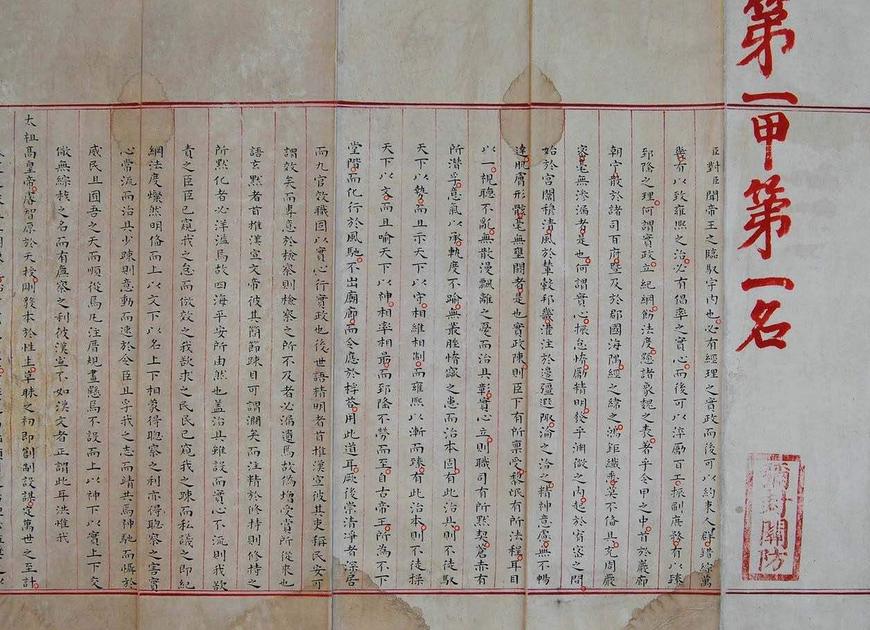 第一甲第一名
彌封關防
臣對臣聞帝王之臨馭宇内也必有經理之實政而後可以約束人群錯綜萬
機有以致雍熙之治必有倡率之實心而後可以淬勵百工振刷庶務有以臻
郅隆之理何謂實政立紀綱飭法度懸諸象魏之表著乎令甲之中首於巖廊
朝宁散於諸司百府暨及於郡國海隅經之緯之鴻鉅纖悉莫不備具充周嚴
密毫無滲漏者是也何謂實心振怠惰勵精明發乎淵微之内起於宥密之間
始於宮闈穆清風於輦轂邦畿灌注於邊疆遐陬淪之洽之精神意慮無不暢
達肌膚形骸毫無壅閼者是也實政陳則臣下有所禀受黎氓有所法程耳目
以一視聽不亂無散漫飄離之憂而治具彰實心立則職司有所默契蒼赤有
所潛孚意氣以承軌度不踰無叢脞惰窳之患而治本固有此治具則不徒馭
天下以勢而且示天下以守相維相制而雍熙以漸而臻有此治本則不徒操
天下以文而且喻天下以神相率相勗而郅隆不勞而至自古帝王所為不下
堂階而化行於風馳不出廟廊而令應於桴答用此道耳厥後崇清淨者深居
而九官效職固以實心行實政也後世語精明者首推漢宣彼其吏稱民安可
謂效矣而專意於檢察則檢察之所不及者必漏遺焉故偽增受賞所從來也
語玄默者首推漢宣文帝彼其簡節疎目可謂濶矣而注精於修持則修持之
所默化者必洋溢焉故四海平安所由然也蓋治具雖設而實心不流則我欲
責之臣臣已窺我之怠而倣效之我欲求之民民已窺我之疎而私議之即紀
綱法度燦然明備而上以文下以名上下相蒙得聰察之利亦得聰察之害實
心常流而治具少疎則意動而速於令臣且孚我之志而靖共焉神馳而懾於
威民且囿吾之天而順從焉凡注厝規畫懸焉不設而上以神下以實上下交
儆無綜核之名而有廑察之利彼漢宣不如漢文者正謂此耳洪惟我
太祖高皇帝睿智原於天授剛毅本於性生草昧之初即創制設謀定萬世之至計